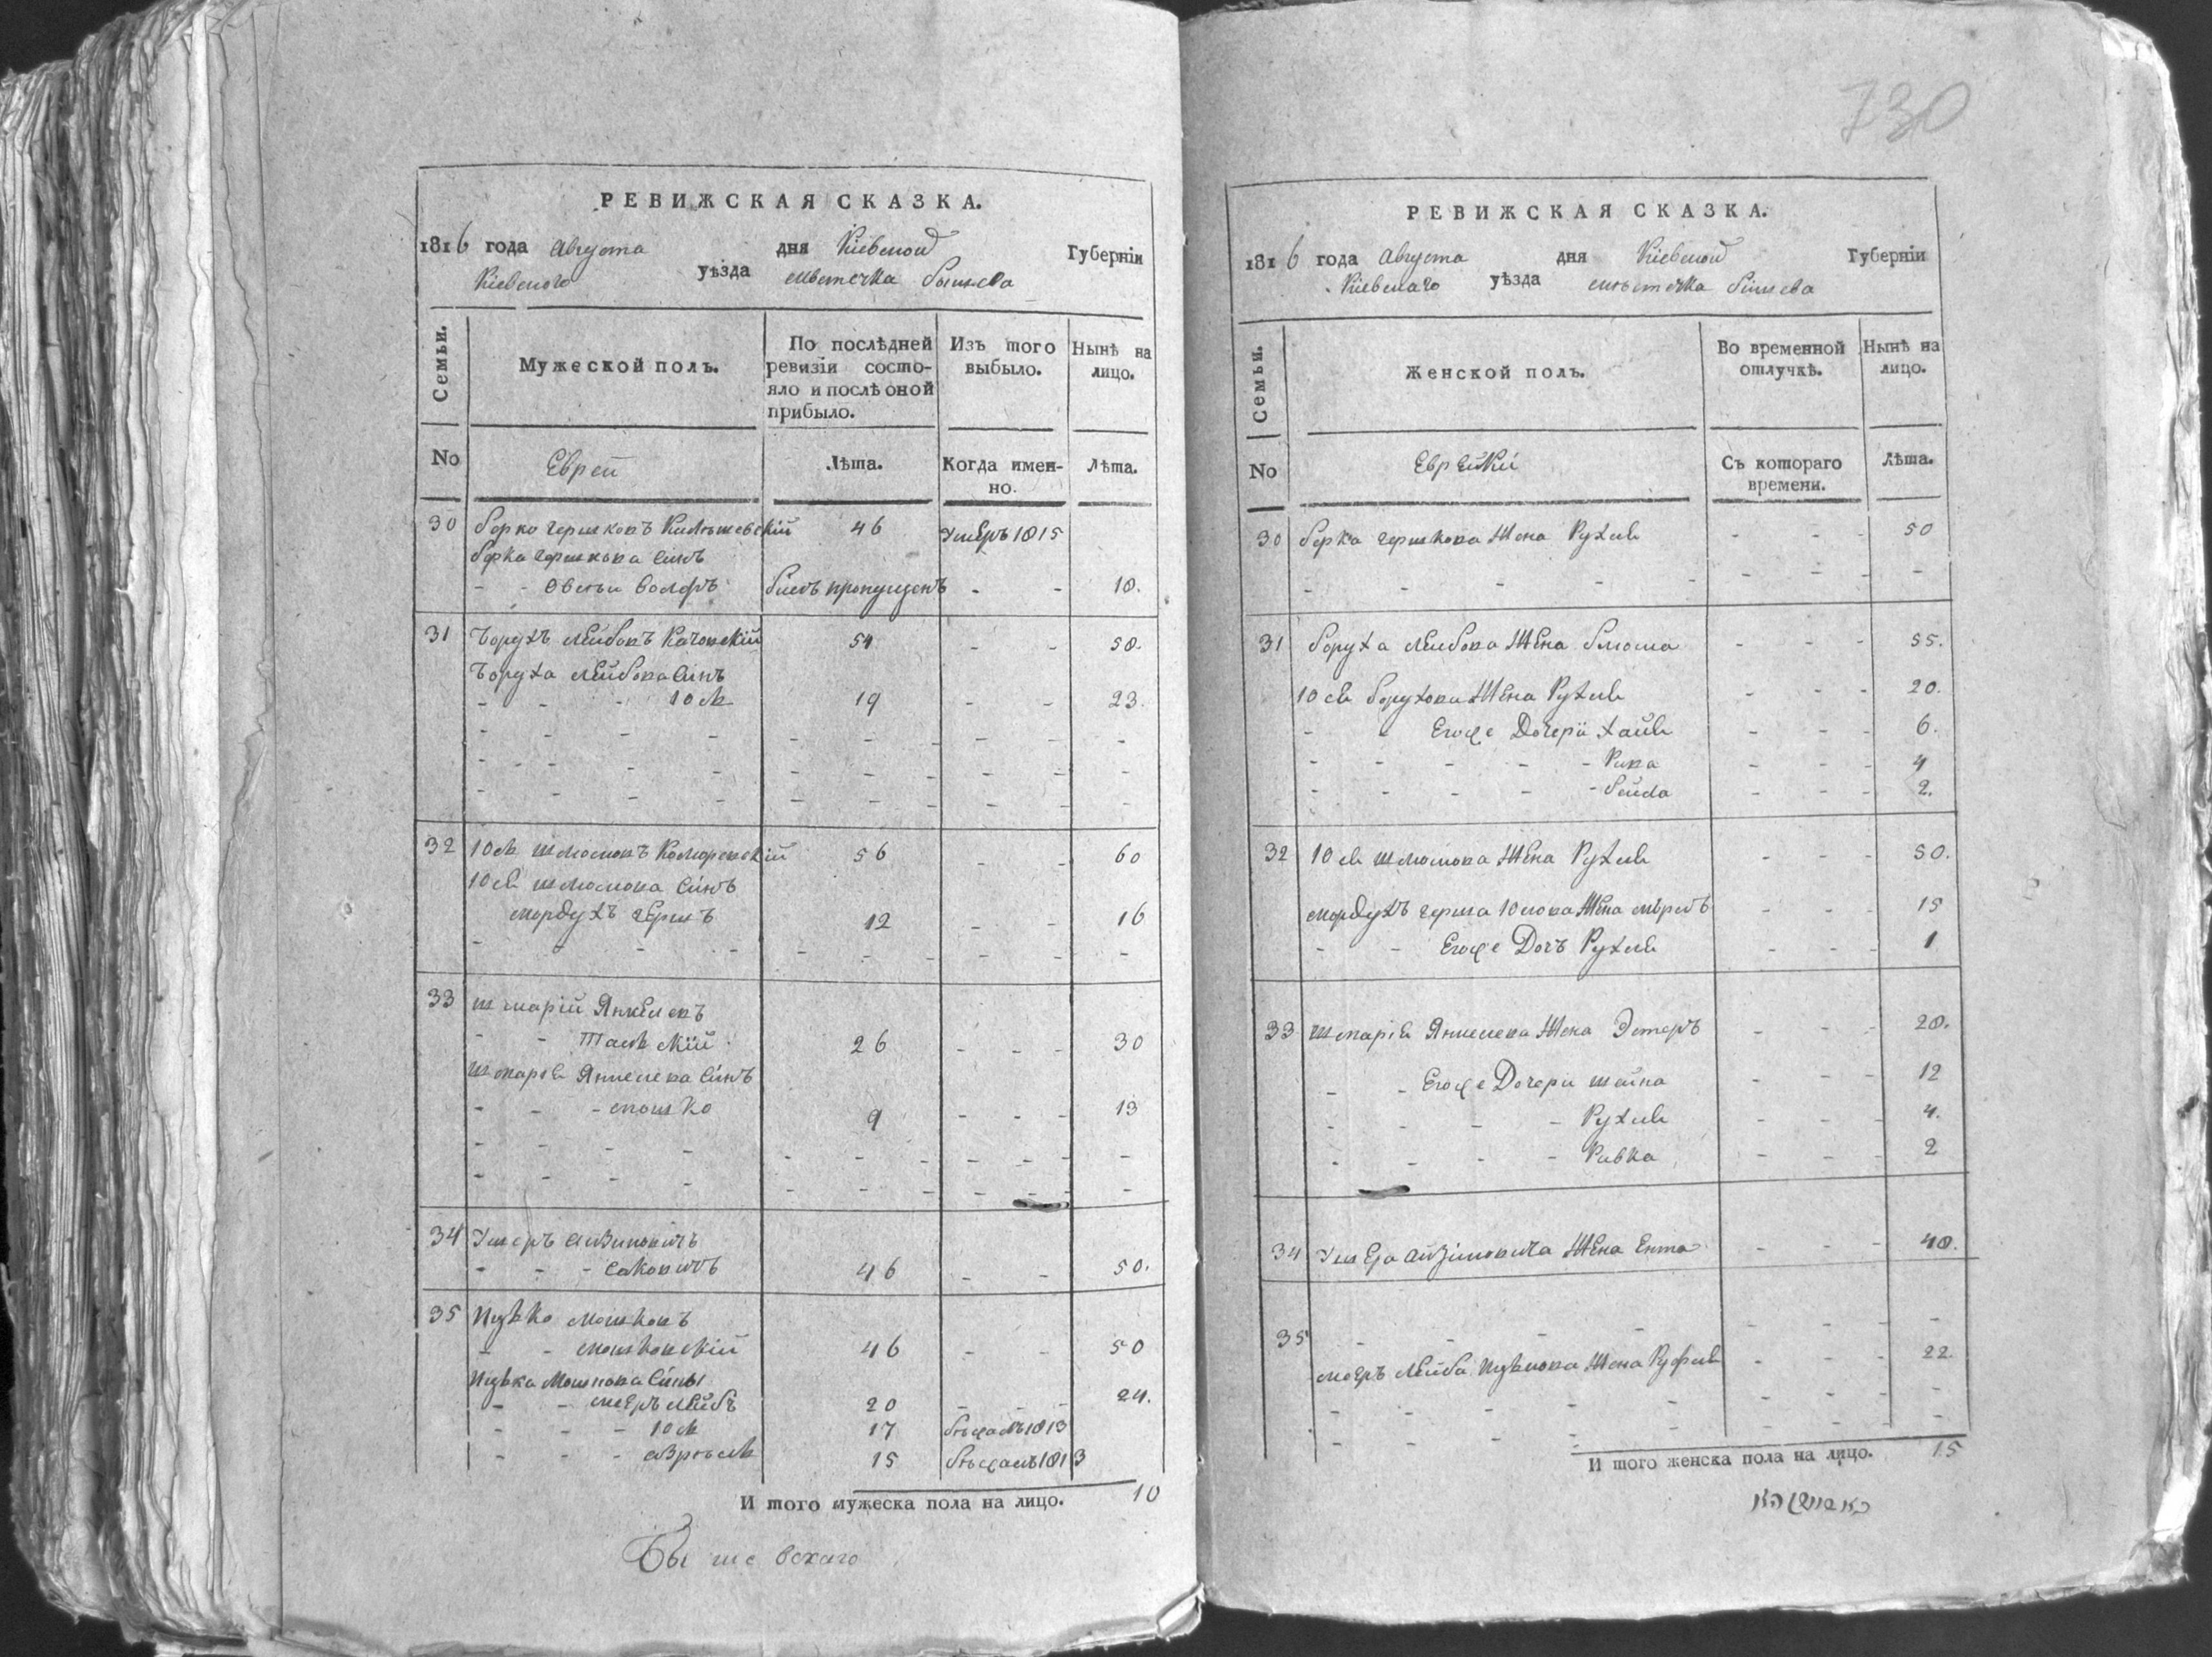 730
РЕВИЖСКАЯ СКАЗКА.
1816 года Августа дня Кіевской Губерніи
Кіевского уѣзда мѣстечка Бышева
Семьи.
Мужеской полъ.
По послѣдней ревизіи состо-
яло и послѣ оной
прибыло.
Изъ того
выбыло.
Нынѣ на
лицо.
No
Еврей
Лѣта.
Когда имен-
но.
Лѣта.
30 Берко Гершковъ 46 Умеръ 1815
Берка Гершкова Синъ
- - Овсѣи Волфъ билъ пропущенъ - - 18.
31 Борухъ Лейбовъ 54 - - 58.
Боруха Лейбова Синъ
- - - Юсь 19 - - 23.
32 Юсь Шлюмовъ 56 - - 60
Юся Шлюмова Синъ
Мордухъ Гершъ 12 - - 16
33 Шмарій Янкелевъ
- - 26 - - - 30
Шмарія Янкелева Синъ
- - - Мошко 9 - - - 13
34 Ушеръ Айзиковичъ
- - - 46 - - 50.
35 Ицько Мошковъ
- - Мошковскій 46 - - 50
Ицька Мошкова Сины
- - Мееръ Лейбъ 20 - - - 24.
- - - Юсь 17 бѣжалъ 1813
- - - Азріель 15 бѣжалъ 1813
И того мужеска пола на лицо. 10
Бы ше вскаго
РЕВИЖСКАЯ СКАЗКА.
1816 года Августа дня Кіевской Губерніи
Кіевскаго уѣзда мѣстечка Бишева
Семьи.
Женской полъ.
Во временной
отлучкѣ.
Нынѣ на
лицо.
No
Еврейки
Съ котораго
времени.
Лѣта.
30 Берка Гершкова Жена Рухля - - - 50
31 Боруха Лейбова Жена Блюма - - - 55.
Юся Борухова Жена Рухля - - - 20.
- - Егоже Дочери Хая - - - 6.
- - - - - Ривка - - - 4
- - - - - Бейла - - - 2.
32 Юся Шлюмова Жена Рухля - - - 50.
Мордухъ Герша Юсова Жена - - - 15
- - Егоже Дочъ Рухля - - - 1
33 Шмарія Янкелева Жена Эстеръ - - - 28.
- - Егоже Дочери Шейна - - - 12
- - - - Рухля - - - 4.
- - - - Ривка - - - 2
34 Ушера Айзіковича Жена Ента - - - 48.
35
Мееръ Лейба Ицькова Жена - - - 22
И того женска пола на лицо. 15